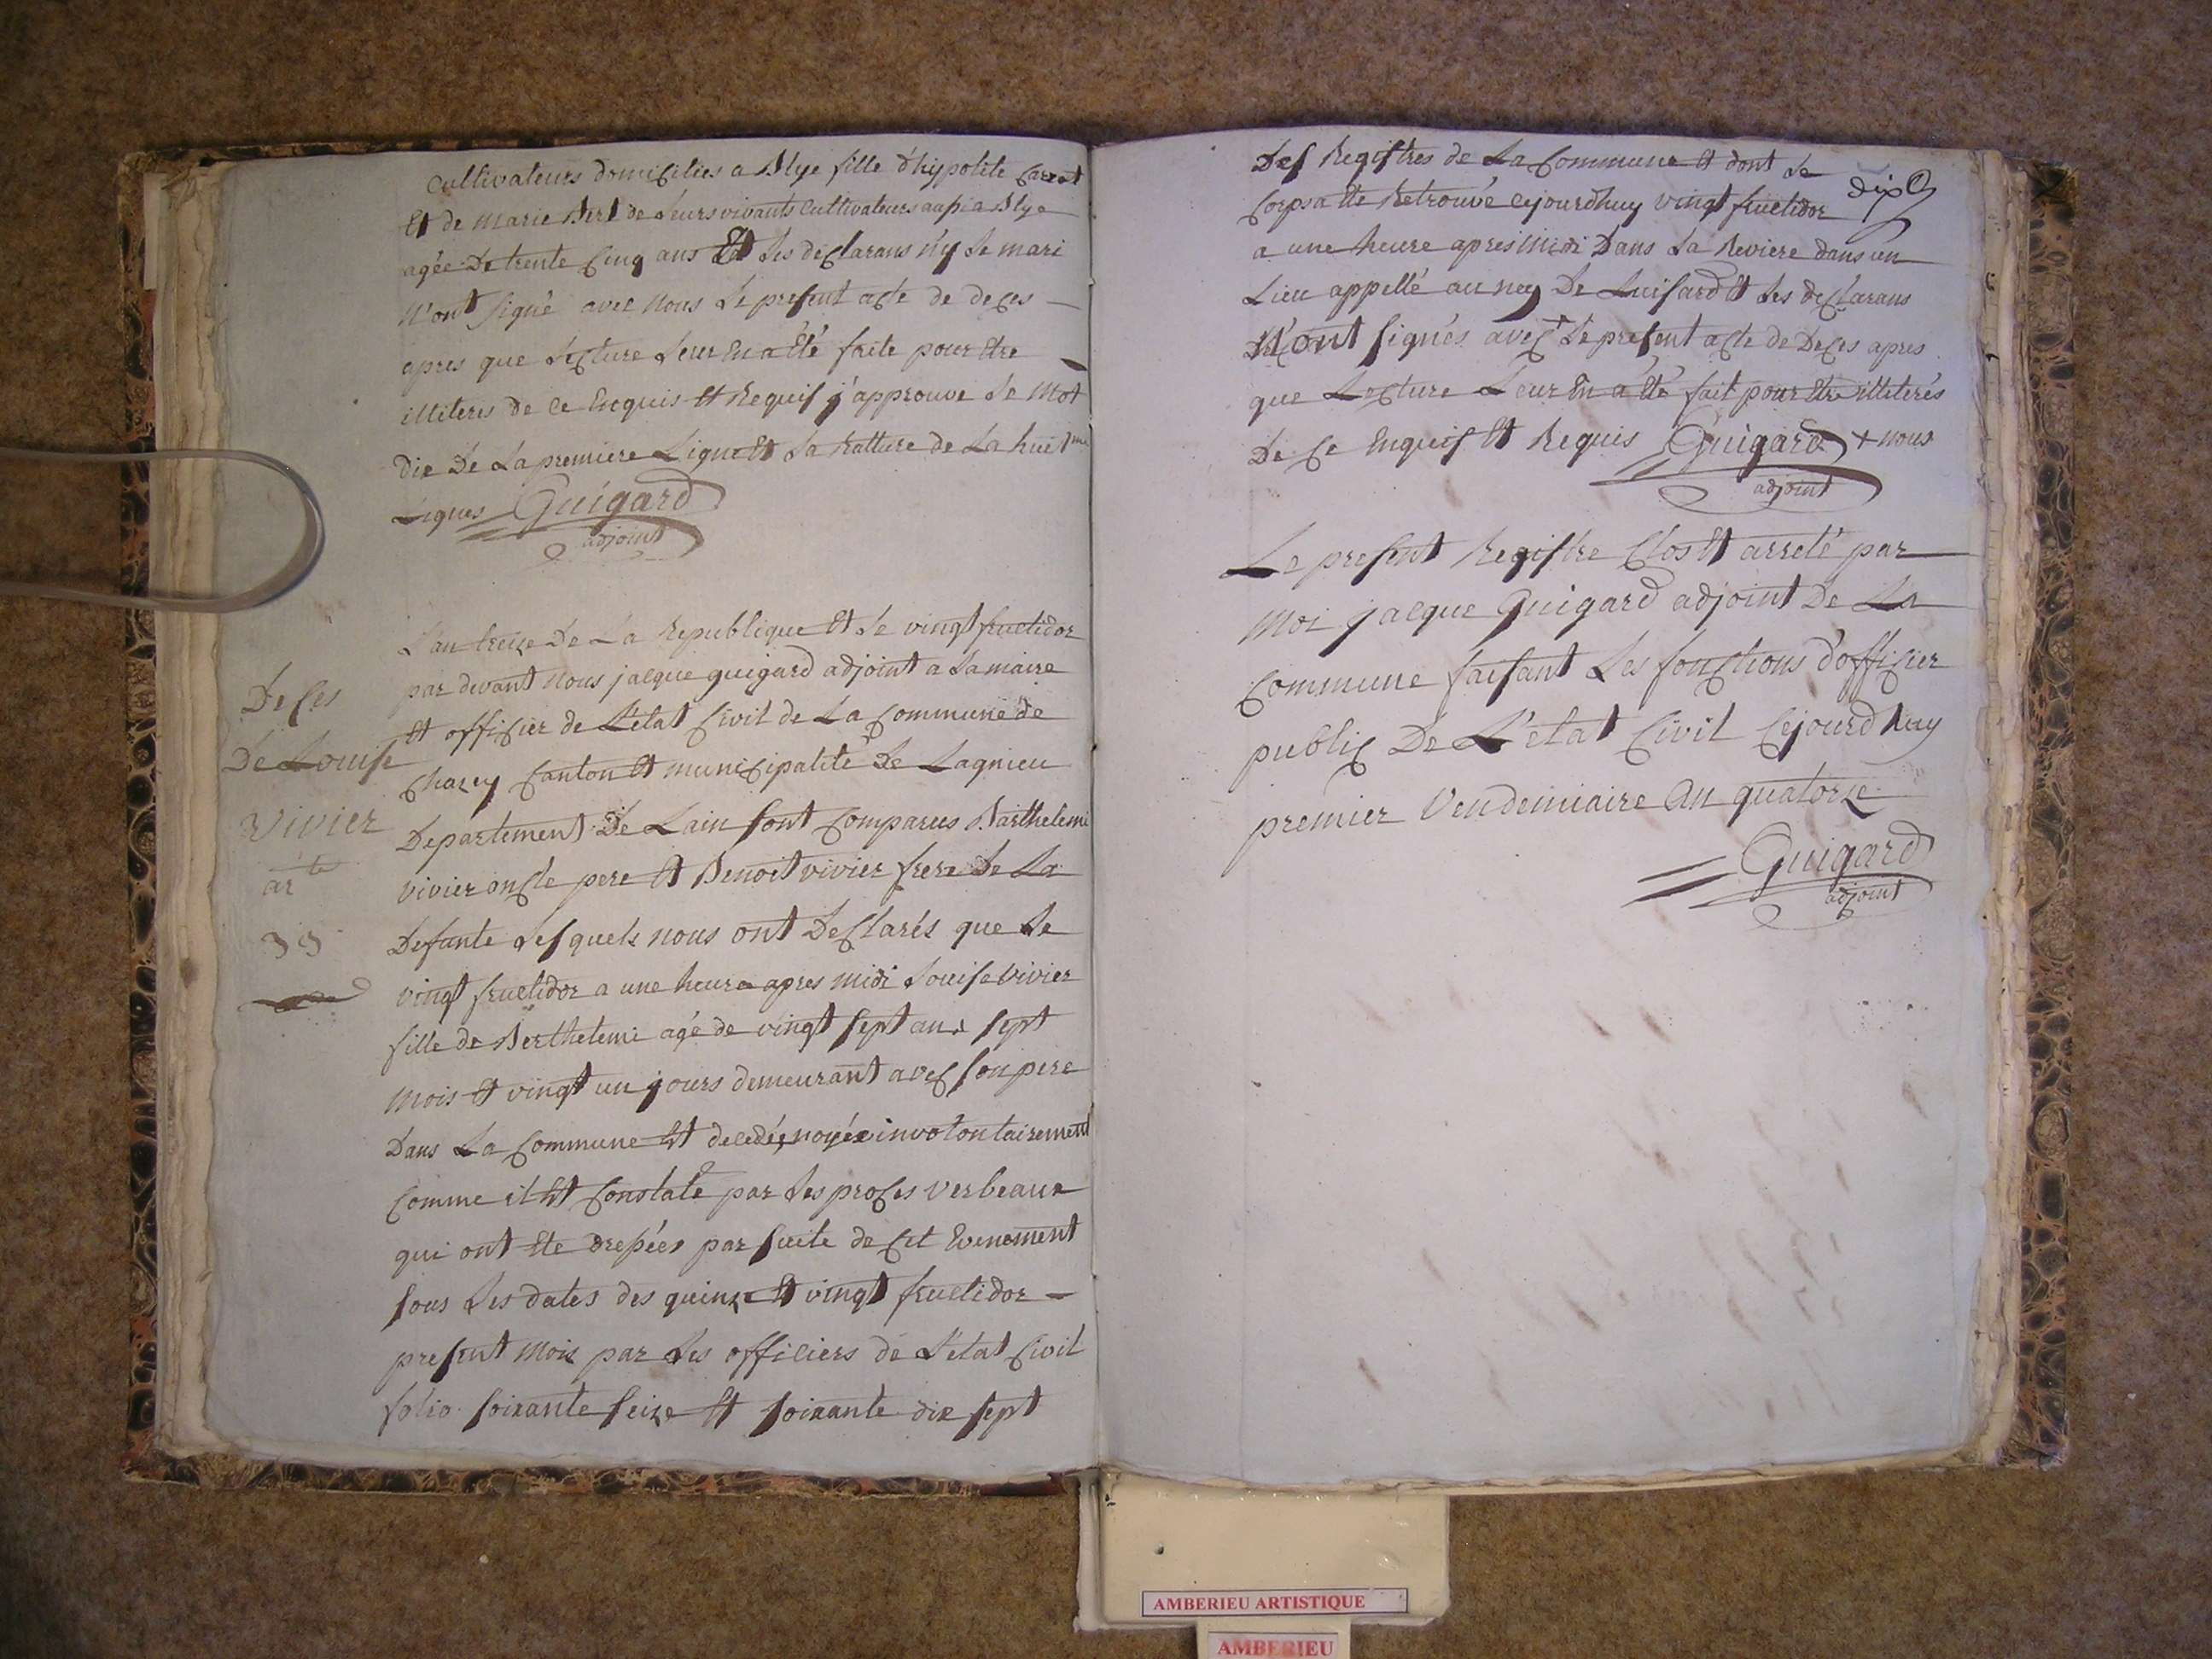 Cultivateurs domiciliés a Blye fille d'hypolite Carrat
Et de marie Bert de Leurs vivants Cultivateurs aussi a Blye
agée De trente Cinq ans Et Les declarans n'y Le mari
N'ont signé avec nous Le present acte de deces —
apres que Lecture Leur En a Eté faite pour Etre
illiteris de ce Enquis Et Requis j'approuve Le Mot
dix De La premiere Ligne Et La Ratture de La huitme
Lignes Guigard
adjoint
L'an treize De La Republique Et Le vingt fructidor
par devant nous jacque guigard adjoint a La maire
Et officier de L'état Civil de La Commune de
Chazey Canton Et municipalité De Lagnieu
Departement De Lain sont Comparus Barthelemi
vivier oncle pere Et Benoit vivier frere De La
Defunte Lesquels nous ont Declarés que Le
vingt fructidor a une heure apres midi Louise Vivier
fille de Berthelemi agé de vingt sept ans sept
mois Et vingt un jours demeurant avec son pere
Dans La Commune Est decedée noyée involontairement
Comme il Est Constaté par Les proces verbeaux
qui ont Eté dressées par suite de Cet Evenement
sous Les dates des quinze Et vingt fructidor —
present mois par Les officiers de L'état Civil
folio soixante seize Et soixante dix sept
Deces
De Louise
Vivier
arte
39
Des Registres de La Commune Et dont Le
Corps a Eté Retrouvé Cejourdhuy vingt fructidor
dix
a une heure apres midi Dans La Reviere dans un
Lieu appellé au Ney De Luisard Et Les declarans
N'ont signés avec + Le present acte de Deces apres
que Lecture Leur En a Eté fait pour Etre illiterés
De Ce Enquis Et Requis Guigard + nous
adjoint
Le present Registre Clos Et arreté par
Moi jacque Guigard adjoint De La
Commune faisant Les fonctions d'officier
public De L'état Civil Cejourdhuy
premier Vendemiaire An quatorze
Guigard
adjoint
AMBERIEU ARTISTIQUE
AMBERIEU